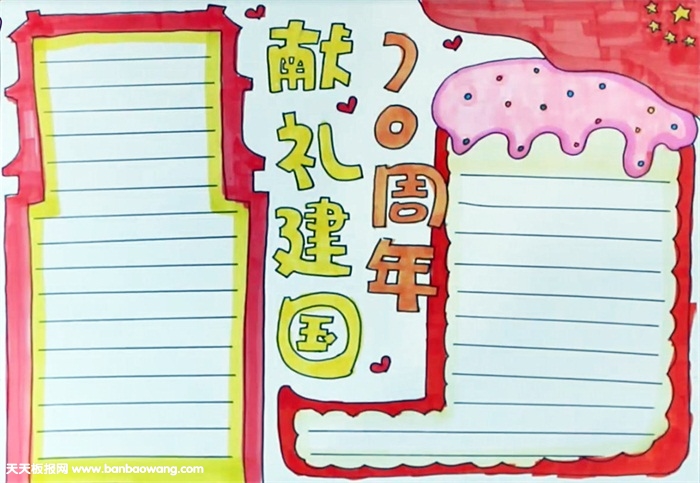 献礼建国
70周年
天天板报网 www.banbaowang.com